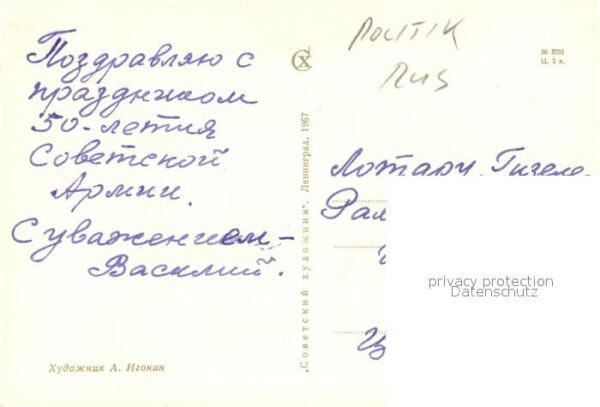 Поздравляю с
праздником
50-летия
Советской
Армии.
С уважением –
Василий.
Художник А. Игонин
„Советский художник". Ленинград. 1967
СХ
POLITIK
№ 3701
Ц. 2 к.
Лотару, Гизеле
privacy protection
Datenschutz